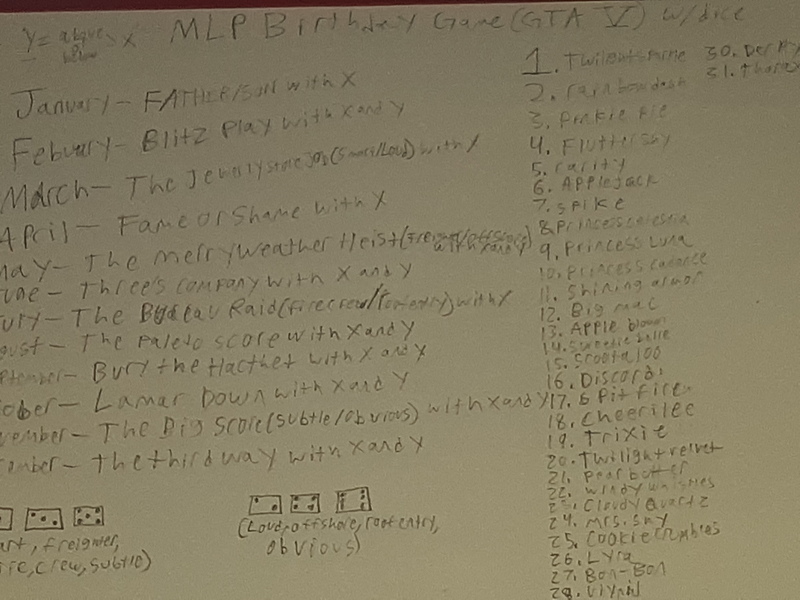 Y= above or below X
MLP Birthday Game (GTA V) w/dice
January- FATHER/SON with X
Febuary- Blitz Play with X and Y
March- The Jewelry store job (Smart/Loud) with X
April- Fame or Shame with X
May- The merryweather Heist (Freighter/offshore) with X and Y
une- Three's company with X and Y
ury- The Bureau Raid (Firecrew/roofentry) with X
gust- The Paleto score with X and Y
ptember- Bury the Hacthet with X and Y
ober- Lamar Down with X and Y
vember- The Big Score (Subtle/Obvious) with X and Y
ember- the third way with X and Y
art, freighter,
ire, crew, subtle)
(Loud, offshore, roof entry,
obvious)
1. Twilight
2. rainbow dash
3. Pinkie Pie
4. Fluttershy
5. rarity
6. Applejack
7. spike
8. Princess celestia
9. Princess Luna
10. Princess cadence
11. Shining armor
12. Big mac
13. Apple bloom
14. Sweetie belle
15. Scootaloo
16. Discord
17. Spitfire
18. Cheerilee
19. Trixie
20. Twilight velvet
21. Pear butter
22. windy whistles
23. Cloudy Quartz
24. Mrs. shy
25. Cookie crumbles
26. Lyra
27. Bon-Bon
28. Vinyl
30. Derpy
31. Thorax